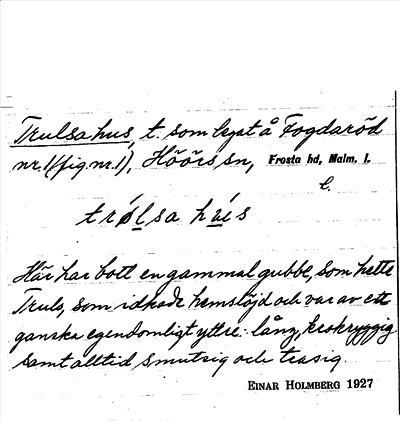 Trulsahus, t. som legat å Fogdaröd
nr.1(fig.nr.1), Höörs sn, Frosta hd, Malm. l.
l.
trǿlsa hús
Här har bott en gammal gubbe, som hette
Truls, som idkade hemslöjd och var av ett
ganska egendomligt yttre: lång, krokryggig
samt alltid smutsig och trasig.
EINAR HOLMBERG 1927